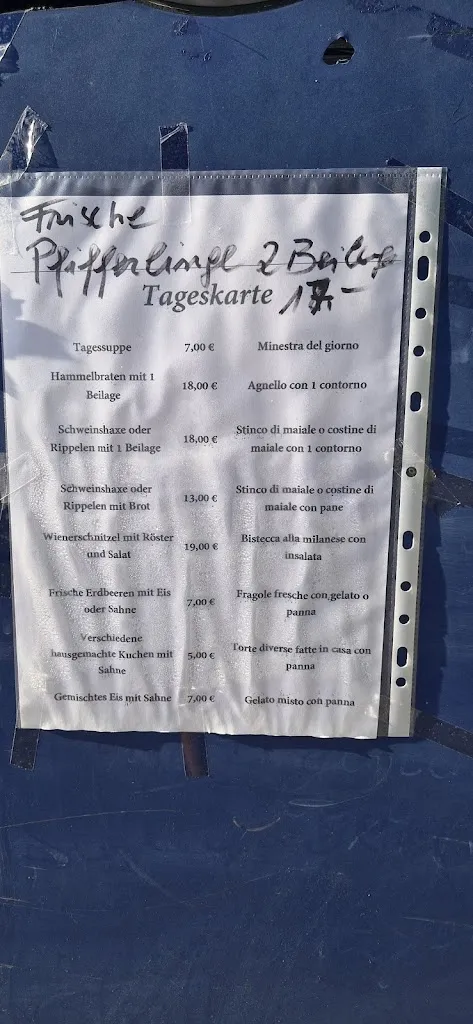 Frische
Pfifferlinge 2 Beilage
Tageskarte 17.-
Tagessuppe 7,00 € Minestra del giorno
Hammelbraten mit 1
Beilage 18,00 € Agnello con 1 contorno
Schweinshaxe oder
Rippelen mit 1 Beilage 18,00 € Stinco di maiale o costine di
maiale con 1 contorno
Schweinshaxe oder
Rippelen mit Brot 13,00 € Stinco di maiale o costine di
maiale con pane
Wienerschnitzel mit Röster
und Salat 19,00 € Bistecca alla milanese con
insalata
Frische Erdbeeren mit Eis
oder Sahne 7,00 € Fragole fresche con gelato o
panna
Verschiedene
hausgemachte Kuchen mit
Sahne 5,00 € Torte diverse fatte in casa con
panna
Gemischtes Eis mit Sahne 7,00 € Gelato misto con panna